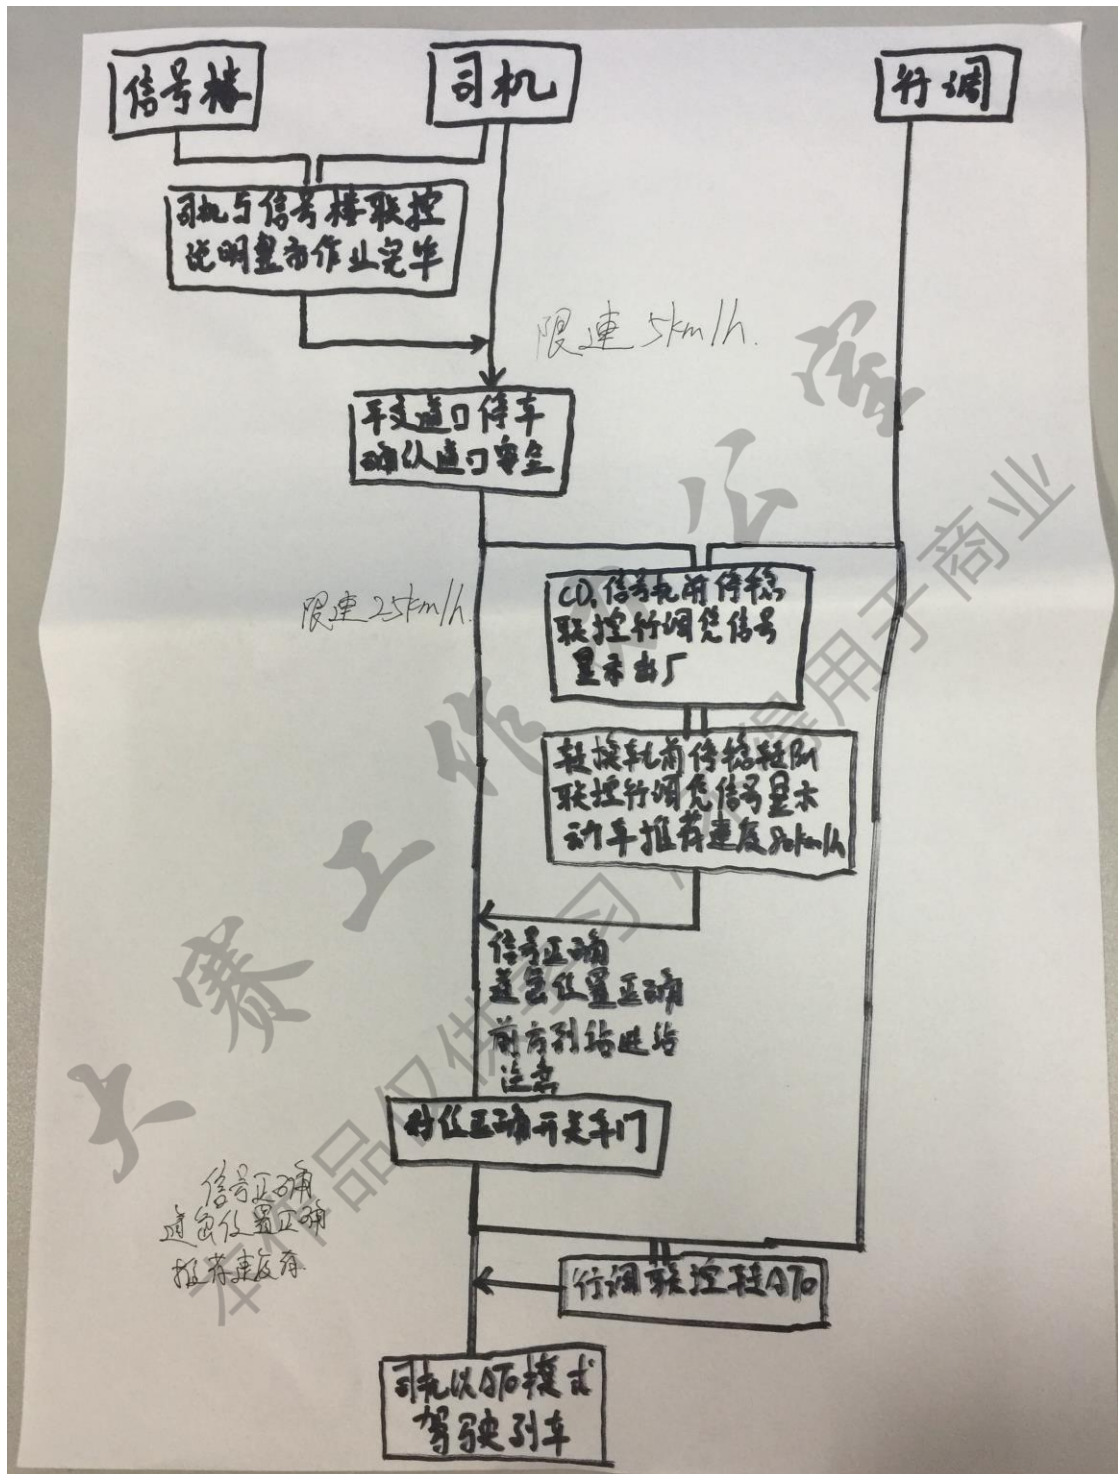 信号楼
司机
行调
司机与信号楼联控
说明整备作业完毕
限速5km/h.
平交道口停车
确认道口安全
限速25km/h.
信号机前停稳
联控行调凭信号
显示出厂
转换轨前停稳
联控行调凭信号显示
动车推荐速度80km/h
信号正确
道岔位置正确
前方列站进站
注意
对位正确开关车门
信号正确
道岔位置正确
推荐速度有
行调联控转ATO
司机以ATO模式
驾驶列车
大赛工作办公室
本作品仅供学习 不得用于商业